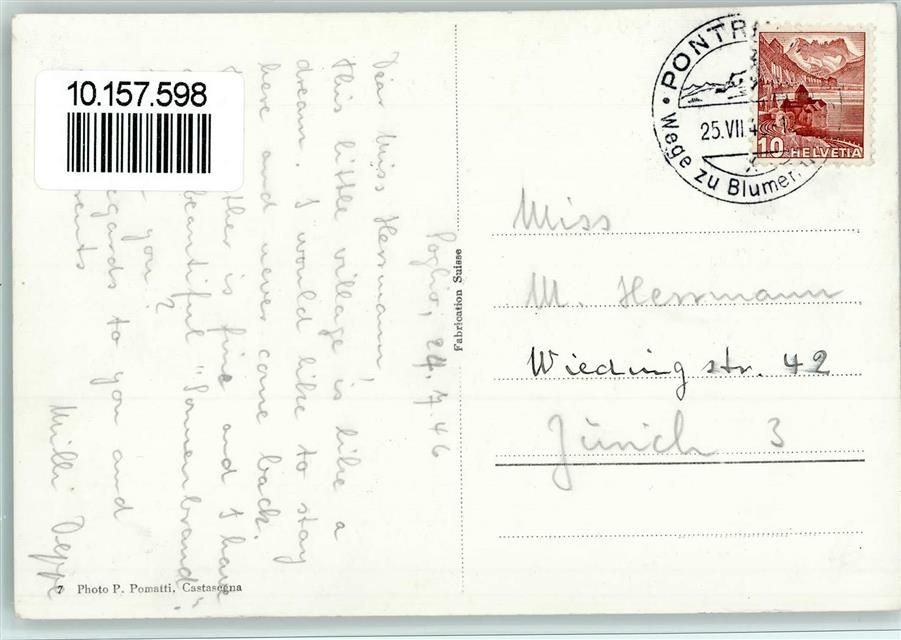 10.157.598
Soglio, 24.7.46
Dear Miss Herrmann,
this little village is like a
dream. I would like to stay
here and never come back.
is fine and I have
beautiful "Sonnenbrand"
you?
regards to you and
Milli Deppe
7 Photo P. Pomatti, Castasegna
Fabrication Suisse
PONTR
25.VII.4
Wege zu Blumen
10 HELVETIA
Miss
M. Herrmann
Wiedingstr. 42
Zürich 3